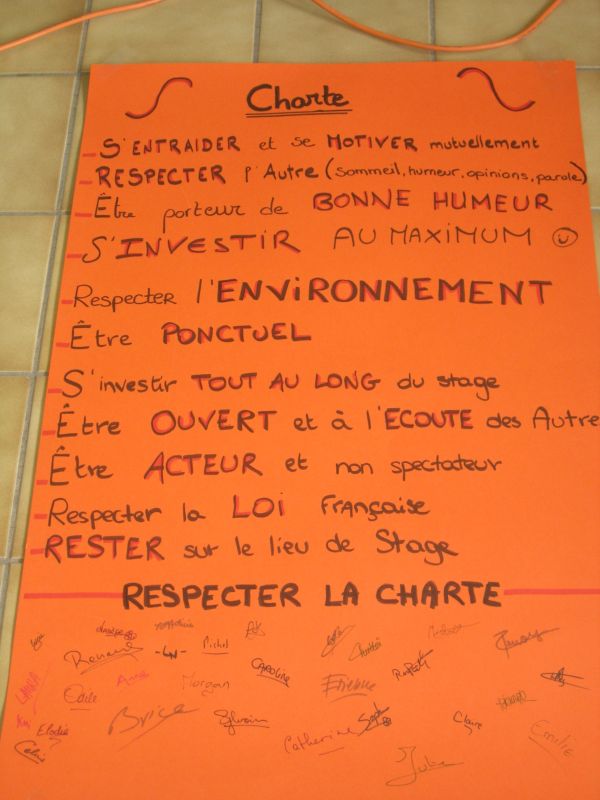 Charte
- S'ENTRAIDER et se MOTIVER mutuellement
- RESPECTER l'Autre (sommeil, humeur, opinions, parole)
- Être porteur de BONNE HUMEUR
- S'INVESTIR AU MAXIMUM ☺
- Respecter l'ENVIRONNEMENT
- Être PONCTUEL
- S'investir TOUT AU LONG du stage
- Être OUVERT et à l'ECOUTE des Autre
- Être ACTEUR et non spectateur
- Respecter la LOI Française
- RESTER sur le lieu de Stage
RESPECTER LA CHARTE
Renaud Michel
CAROLINE
LAURA Anne Morgan Etienne
Elodie Brice Sylvain Claire
Catherine Emilie
Julien